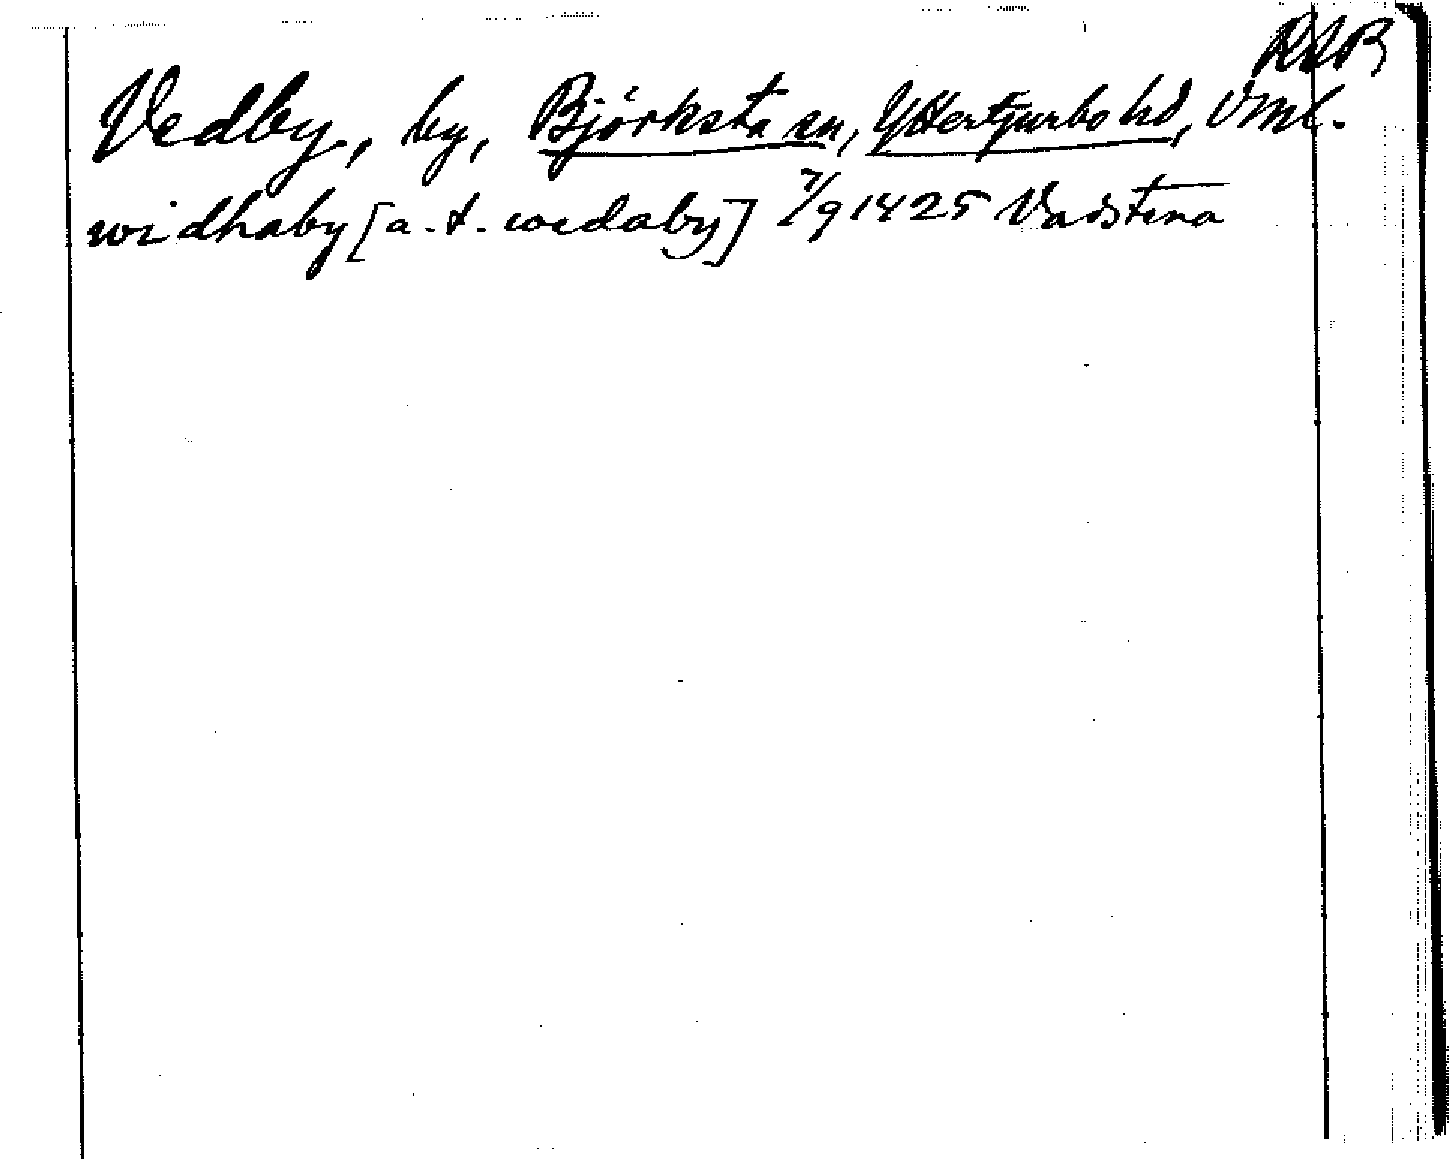 RAB
Vedby, by, Björksta sn, Ytterjurbo hd, Vml.
widhaby [a. t. wedaby] 7/9 1425 Vadstena